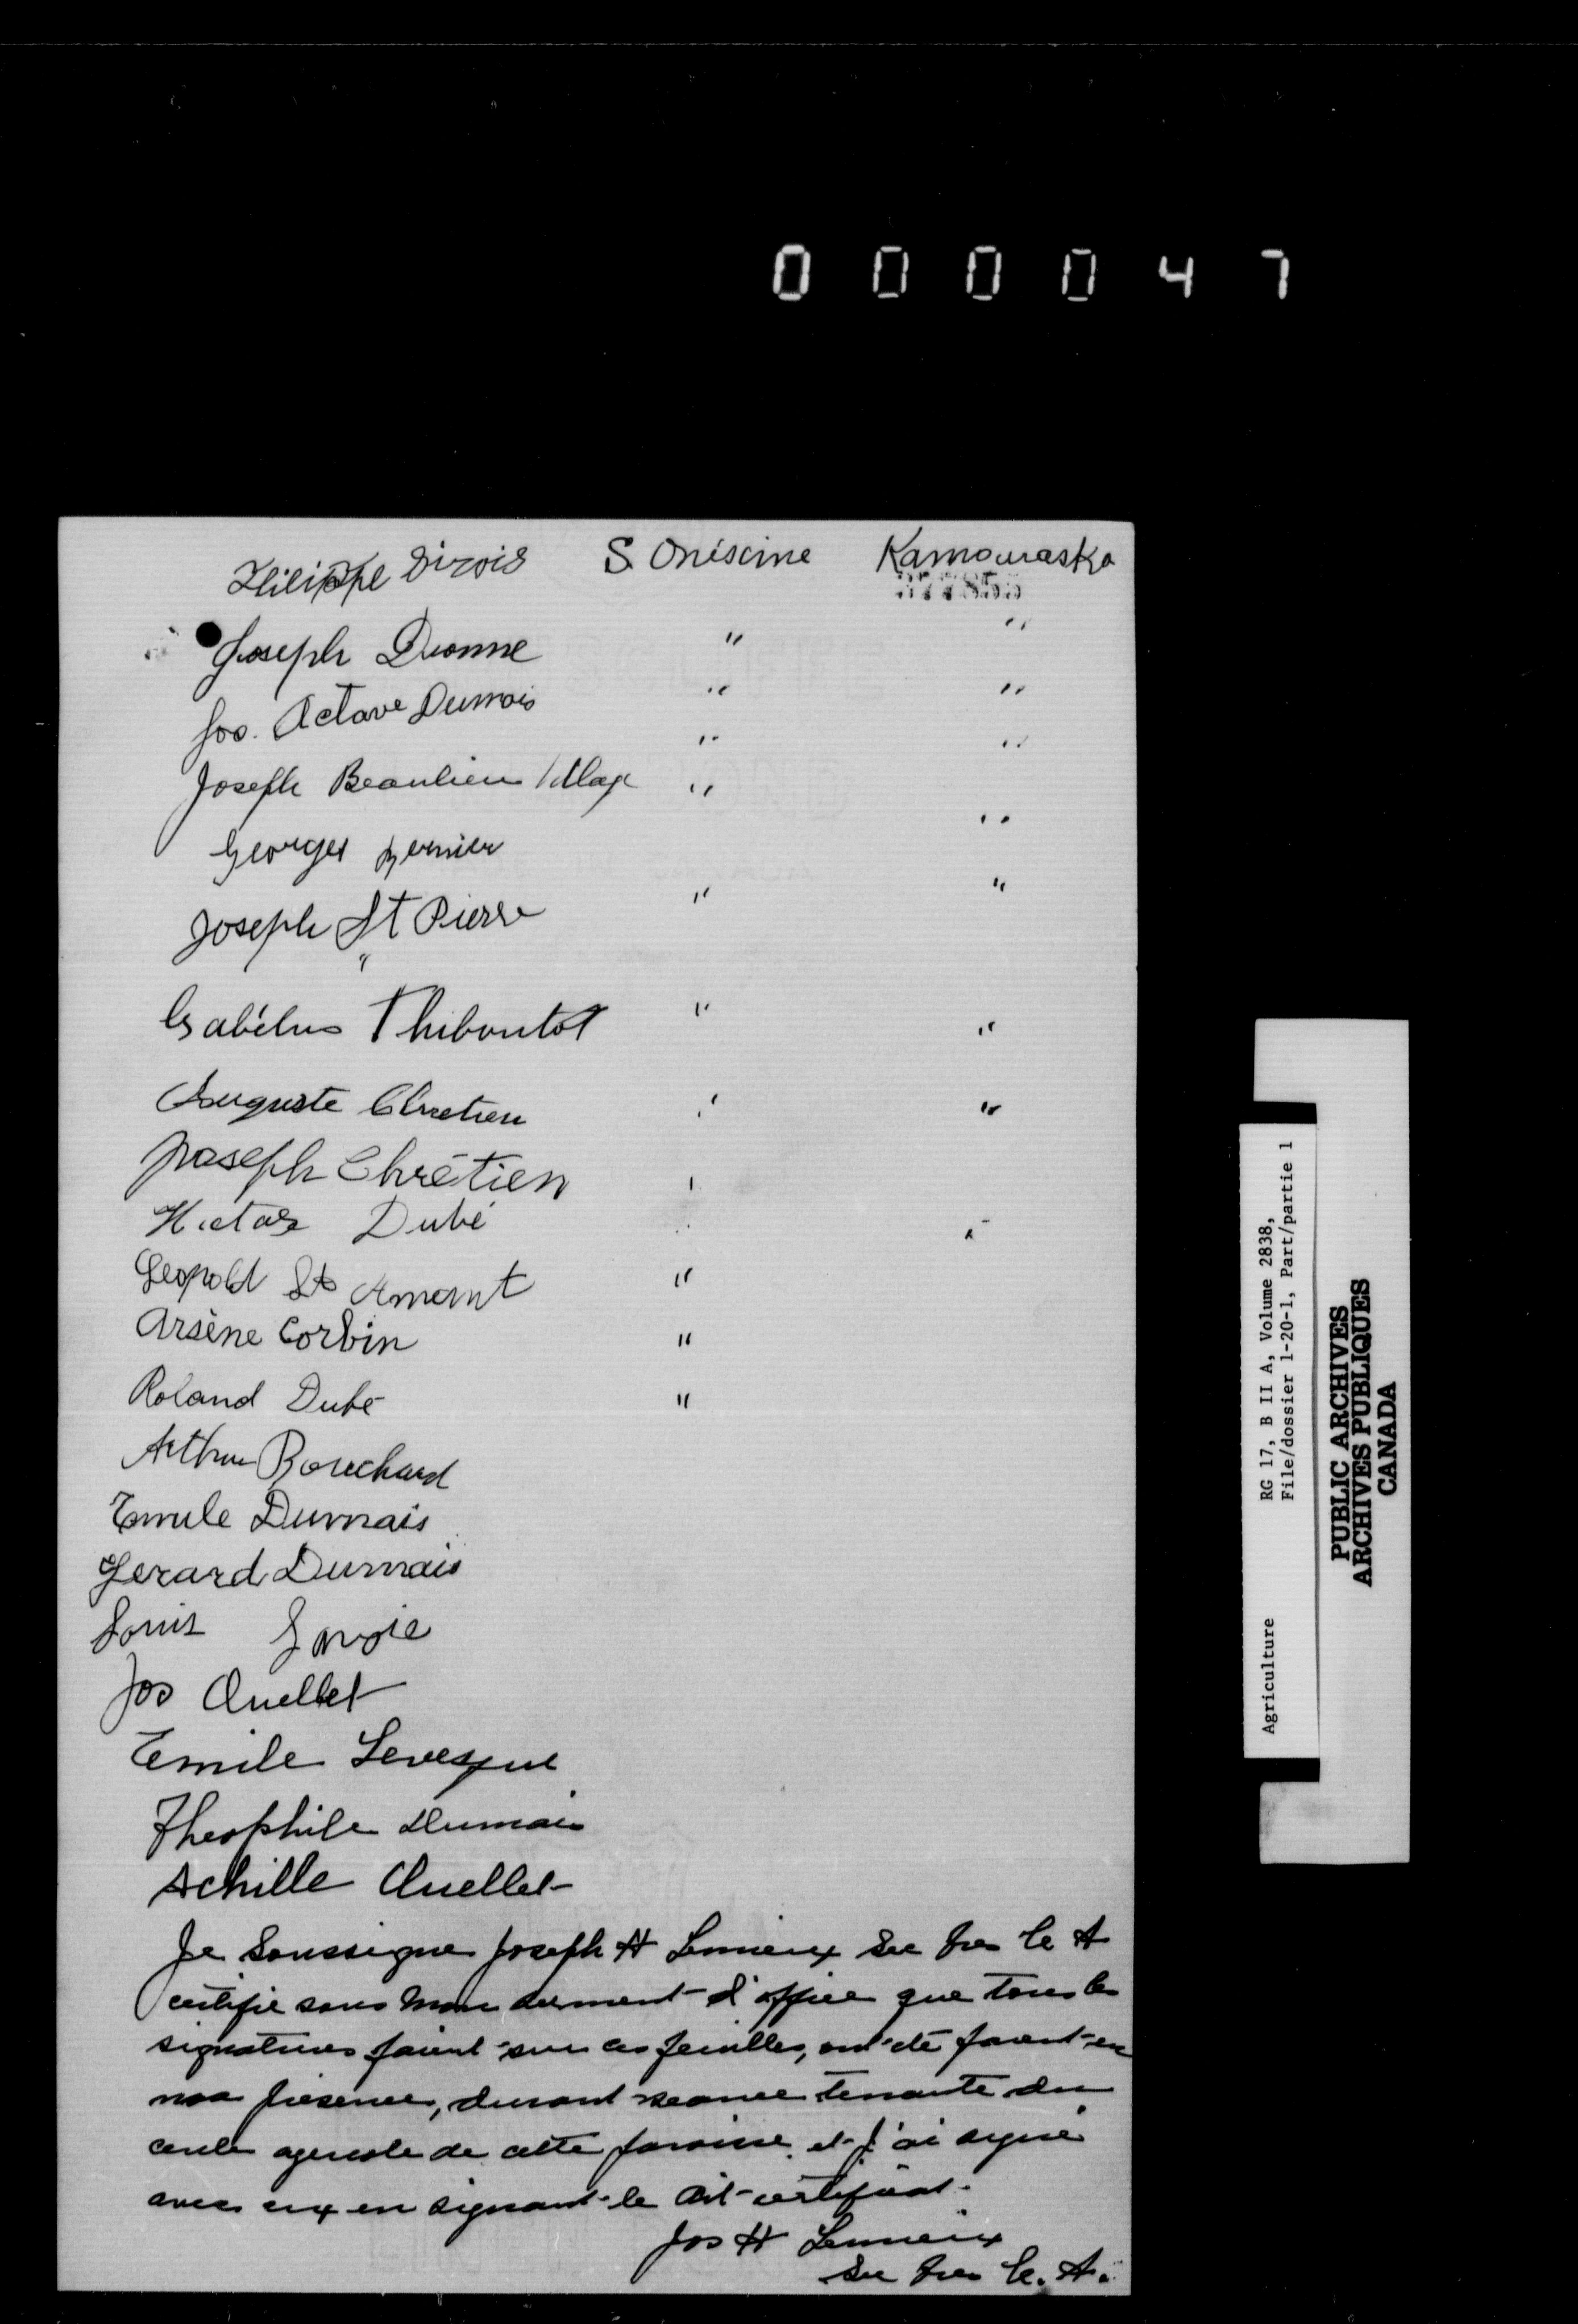 000047
Philippe Sirois S. Onésime Kamouraska
377855
Joseph Dionne " "
Jos. Octave Dumais " "
" "
Joseph Beaulieu Village "
Georges Bernier "
Joseph St Pierre " "
"
Gabélus Thiboutot " "
Auguste Chretien " "
Joseph Chrétien
Hictor Dubé "
Leopold St Amant "
Arsène Corbin "
Roland Dubé "
Arthur Bouchard
Emile Dumais
Gerard Dumais
Louis Savoie
Jos Ouellet
Emile Levesque
Theophile Dumais
Achille Ouellet
Je Soussigne Joseph H Lemieux Sec Tres C A
certifie sous mon serment d'office que tous les
signatures faient sur ces feuilles, ont été faient en
ma présence, durant seance tenante du
cercle agricole de cette paroisse et j'ai signé
avec eux en signant le dit certificat.
Jos H Lemieux
Sec Tres C. A.
Agriculture RG 17, B II A, Volume 2838,
File/dossier 1-20-1, Part/partie 1
PUBLIC ARCHIVES
ARCHIVES PUBLIQUES
CANADA